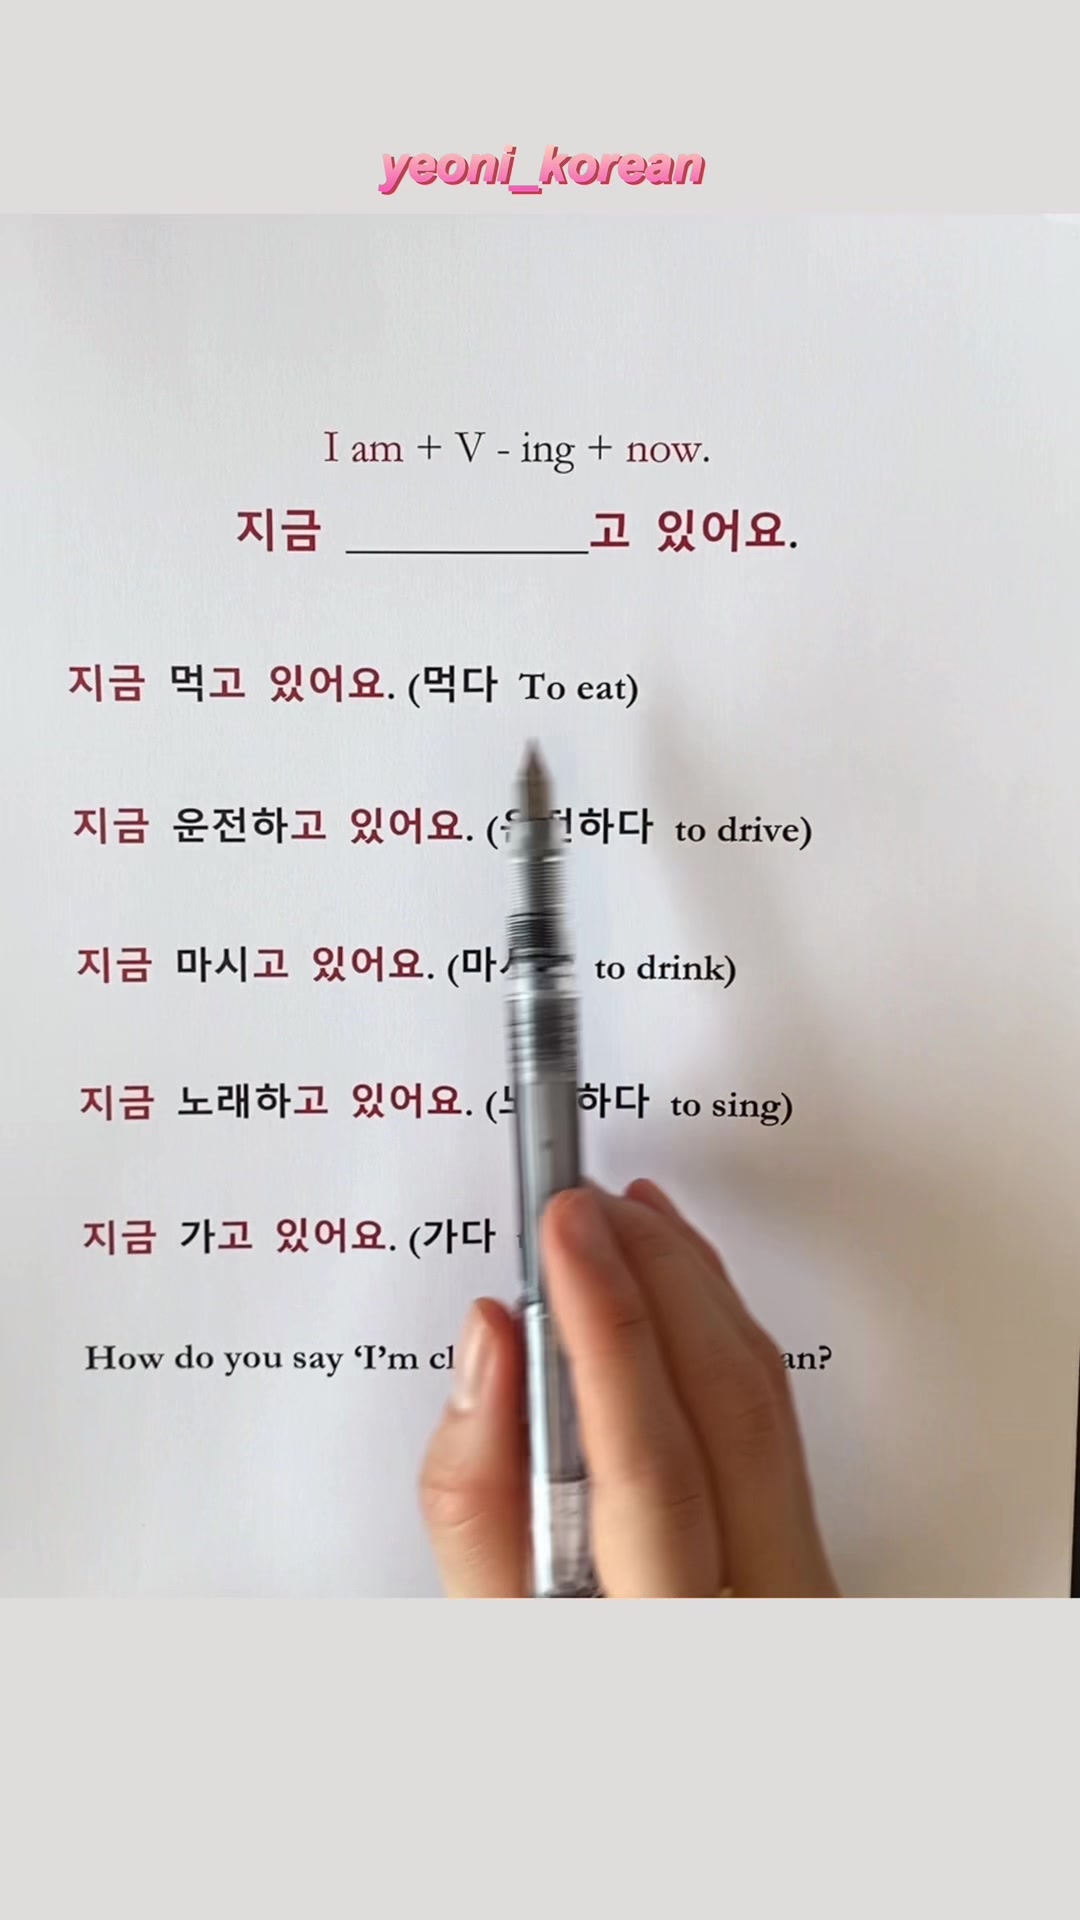 yeoni_korean
I am + V - ing + now.
지금 __________고 있어요.
지금 먹고 있어요. (먹다 To eat)
지금 운전하고 있어요. ( 하다 to drive)
지금 마시고 있어요. (마 to drink)
지금 노래하고 있어요. ( 하다 to sing)
지금 가고 있어요. (가다
How do you say ‘I’m